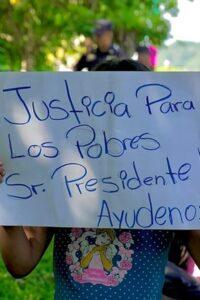 Justicia Para
Los Pobres
Sr. Presidente
Ayudenos